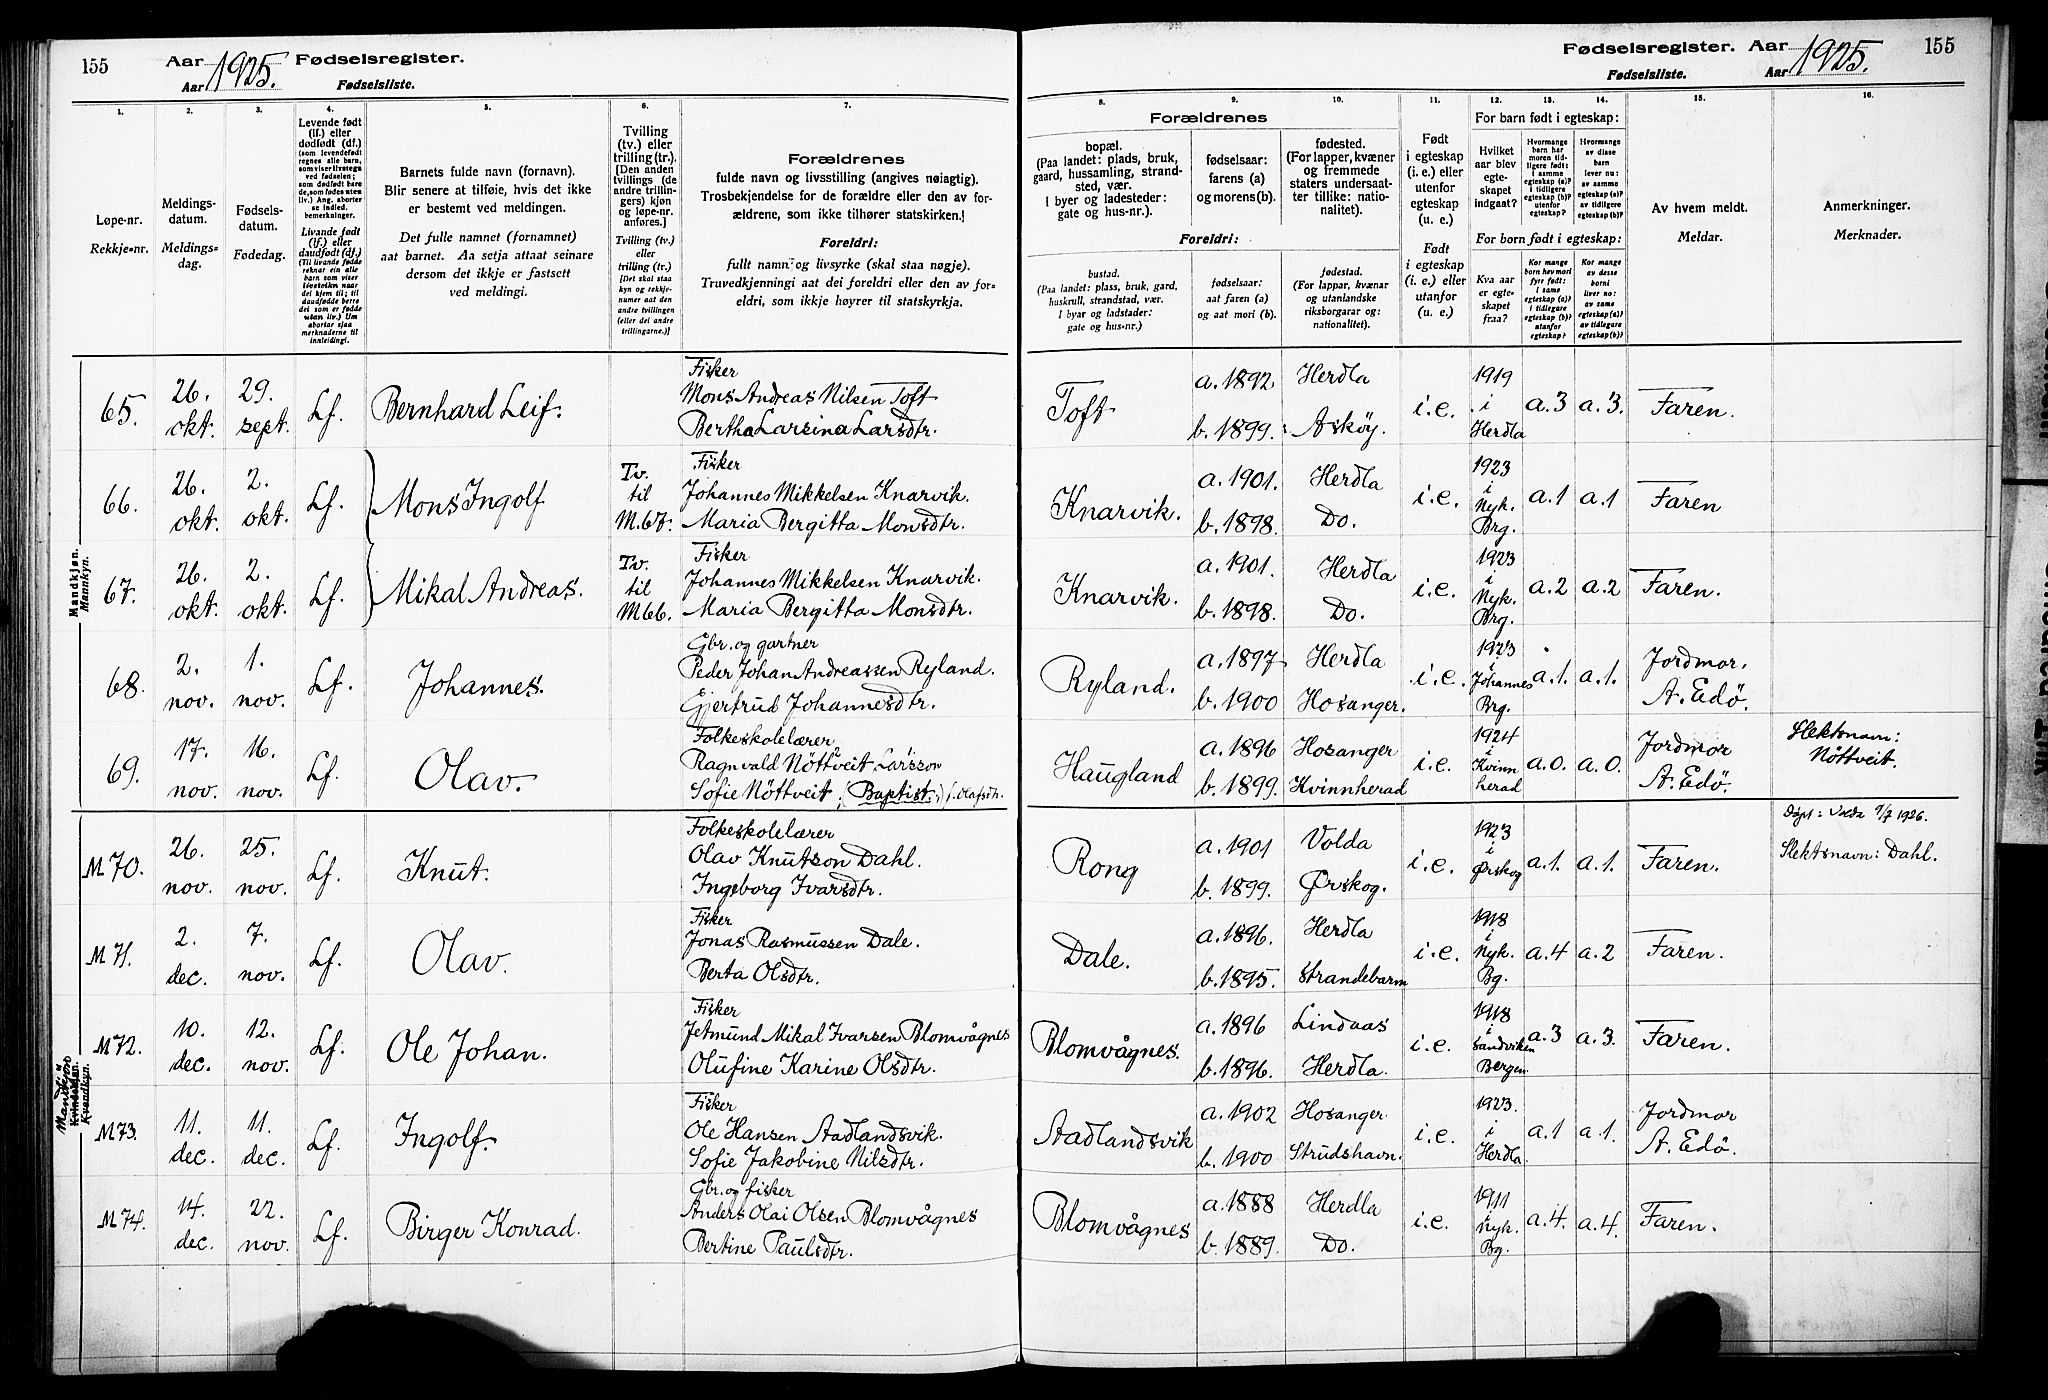 155 Aar 1925. Fødselsregister.
Aar Fødselsliste.
Fødselsregister. Aar 1925. 155
Fødselsliste. Aar
1. 2. 3. 4. 5. 6. 7. 8. 9. 10. 11. 12. 13. 14. 15. 16.
Løpe-nr.
Rekkje-nr.
Meldings-
datum.
Meldings-
dag.
Fødsels-
datum.
Fødedag.
Levende født
(lf.) eller
dødfødt (df.)
(som levendefødt
regnes alle barn,
som viser livstegn
ved fødselen;
som dødfødt bare
de, som fødes uten
liv.) Ang. aborter
se indled.
bemerkninger.
Livande født
(lf.) eller
daudfødt (df.)
(Til livande fødde
reknar ein alle
barn som viser
livsteikn naar
dei kjem til; til
daudfødde berre
dei som er fødde
utan liv.) Um
abortar sjaa
merknaderne til
innleidingi.
Barnets fulde navn (fornavn).
Blir senere at tilføie, hvis det ikke
er bestemt ved meldingen.
Det fulle namnet (fornamnet)
aat barnet. Aa setja attaat seinare
dersom det ikkje er fastsett
ved meldingi.
Tvilling
(tv.) eller
trilling (tr.).
[Den anden
tvillings (de
andre trillin-
gers) kjøn
og løpe-nr.
anføres.]
Tvilling (tv.)
eller
trilling (tr.)
[Det skal staa
kyn og rekkje-
numer aat den
andre tvillingen
(eller dei andre
trillingarne.)]
Forældrenes
fulde navn og livsstilling (angives nøiagtig).
Trosbekjendelse for de forældre eller den av for-
ældrene, som ikke tilhører statskirken.]
Foreldri:
fullt namn og livsyrke (skal staa nøgje).
Truvedkjenningi aat dei foreldri eller den av for-
eldri, som ikkje høyrer til statskyrkja.
Forældrenes
bopæl.
(Paa landet: plads, bruk,
gaard, hussamling, strand-
sted, vær.
I byer og ladesteder:
gate og hus-nr.).
fødselsaar:
farens (a)
og morens (b).
fødested.
(For lapper, kvæner
og fremmede
staters undersaat-
ter tillike: natio-
nalitet).
Foreldri:
bustad.
(Paa landet: plass, bruk, gard,
huskrull, strandstad, vær.
I byar og ladstader:
gate og hus-nr.)
fødselsaar:
aat faren (a)
og aat mori (b).
fødestad.
(For lappar, kvænar
og utanlandske
riksborgarar og:
nationalitet).
Født
i egteskap
(i. e.) eller
utenfor
egteskap
(u. e.)
Født
i egteskap
(i. e.) eller
utanfor
(u. e.)
For barn født i egteskap:
Hvilket
aar blev
egte-
skapet
indgaat?
Hvormange
barn har
moren tid-
ligere født:
i samme
egteskap (a)?
i tidligere
egteskap (b)?
utenfor
egteskap?
Hvormange
av disse
barn
lever nu:
av samme
egteskap (a)?
av tidligere
egteskap (b)?
For born født i egteskap:
Kva aar
er egte-
skapet
fraa?
Kor mange
born hev mori
fyrr født:
i same
egteskap (a)?
i tidlegare
egteskap (b)?
utanfor
egteskap?
Kor mange
av desse
borni
liver no:
av same
egteskap (a)?
av tidlegare
egteskap (b)?
Av hvem meldt.
Meldar.
Anmerkninger.
Merknader.
Mandkjøn.
Mannkyn.
65. 26. okt. 29. sept. Lf. Bernhard Leif. Fisker
Mons Andreas Nilsen Toft
Bertha Larsina Larsdtr. Toft a. 1892 Herdla
b. 1899. Askøy. i.e. 1919 i Herdla a. 3 a. 3. Faren.
66. 26. okt. 2. okt. Lf. Mons Ingolf Tv. til M. 67. Fisker
Johannes Mikkelsen Knarvik.
Maria Bergitta Monsdtr. Knarvik. a. 1901. Herdla
b. 1898. Do. i.e. 1923 i Nyk. Brg. a. 1 a. 1 Faren
67. 26. okt. 2. okt. Lf. Mikal Andreas. Tv. til M 66. Fisker
Johannes Mikkelsen Knarvik.
Maria Bergitta Monsdtr. Knarvik. a. 1901. Herdla
b. 1898. Do. i.e. 1923 i Nyk. Brg. a. 2 a. 2 Faren.
68. 2. nov. 1. nov. Lf. Johannes. Gbr. og gartner
Peder Johan Andreassen Ryland.
Gjertrud Johannesdtr. Ryland. a. 1897 Herdla
b. 1900 Hosanger. i.e. 1923 i Johannes Brg. a. 1. a. 1. Jordmor. A. Edø.
69. 17. nov. 16. nov. Lf. Olav. Folkeskolelærer
Ragnvald Nøttveit Larsson
Sofie Nøttveit, (Baptist,) f. Olafsdtr. Haugland a. 1896 Hosanger
b. 1899. Kvinnherad i.e. 1924 i Kvinn herad a. 0. a. 0. Jordmor A. Edø. Slektsnavn: Nøttveit.
M 70. 26. nov. 25. nov. Lf. Knut. Folkeskolelærer
Olav Knutson Dahl.
Ingeborg Ivarsdtr. Rong a. 1901 Volda
b. 1899. Ørskog. i.e. 1923 i Ørskog a. 1. a. 1. Faren. Døpt: Volda 1926.
Slektsnavn: Dahl.
M 71. 2. dec. 7. nov. Lf. Olav. Fisker
Jonas Rasmussen Dale.
Berta Olsdtr. Dale. a. 1896. Herdla
b. 1895. Strandebarm i.e. 1918 i Nyk. Bg. a. 4 a. 2 Faren.
Mandkjøn
Kvindekjøn.
Kvendkyn.
M 72. 10. dec. 12. nov. Lf. Ole Johan. Fisker
Jetmund Mikal Ivarsen Blomvågnes
Olufine Karine Olsdtr. Blomvågnes. a. 1896 Lindaas
b. 1896. Herdla. i.e. 1918 i Sandviken Bergen a. 3 a. 3. Faren.
M 73. 11. dec. 11. dec. Lf. Ingolf. Fisker
Ole Hansen Aadlandsvik.
Sofie Jakobine Nilsdtr. Aadlandsvik a. 1902 Hosanger
b. 1900 Strudshavn. i.e. 1923. i Herdla. a. 1 a. 1. Jordmor A. Edø.
M 74. 14. dec. 22. nov. Lf. Birger Konrad. Gbr. og fisker
Anders Olai Olsen Blomvågnes
Bertine Paulsdtr. Blomvågnes a. 1888 Herdla
b. 1889. Do. i.e. 1911 i Nyk. Bg. a. 4. a. 4. Faren.